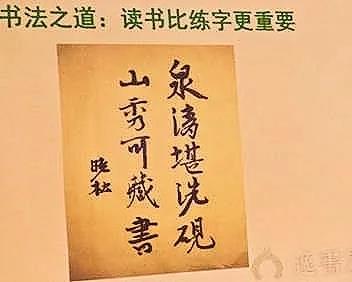 书法之道：读书比练字更重要
泉漓堪洗硯
山秀可藏書